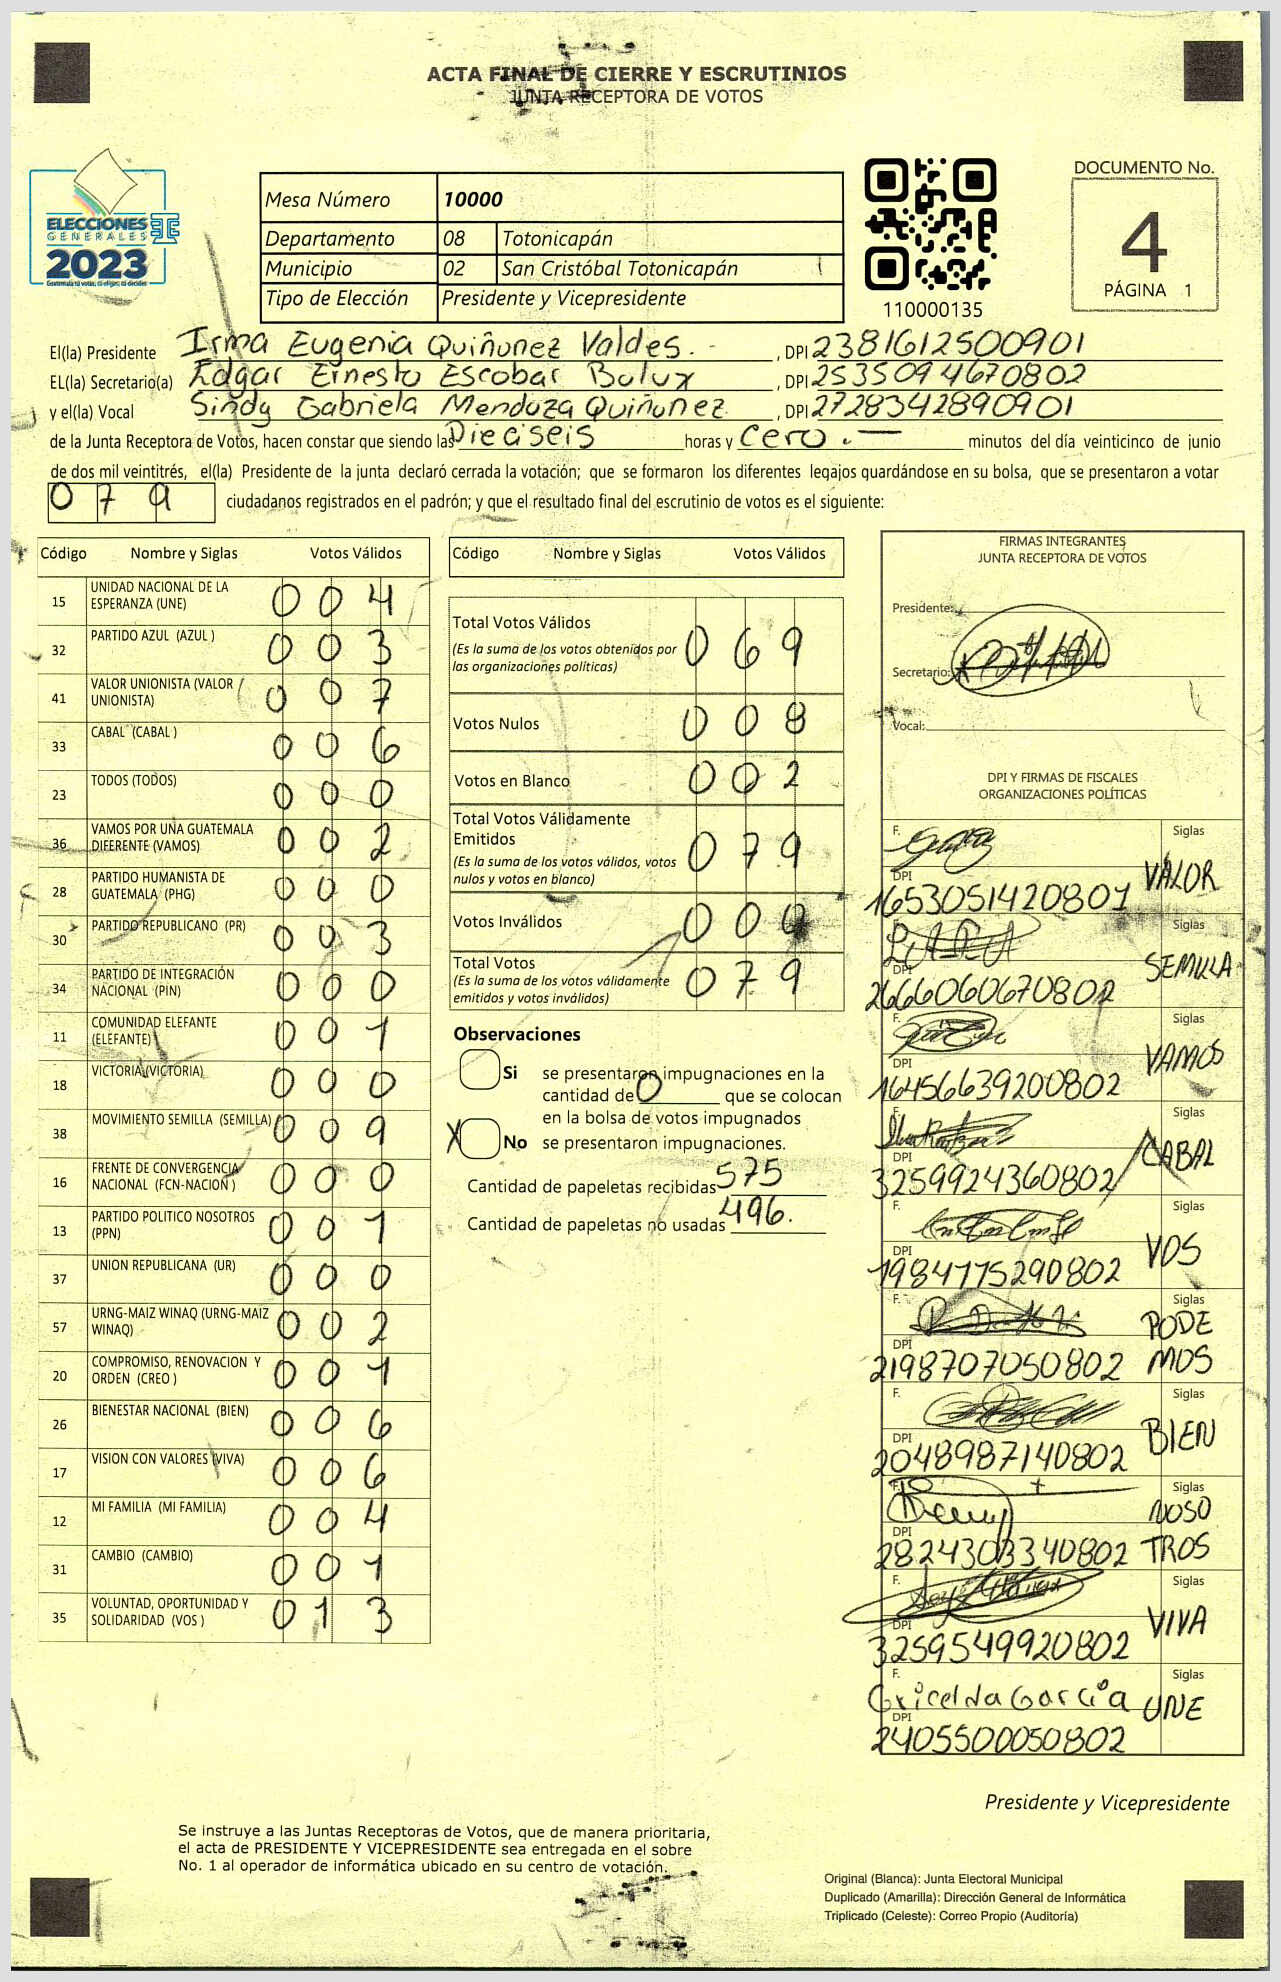 ACTA FINAL DE CIERRE Y ESCRUTINIOS
JUNTA RECEPTORA DE VOTOS
ELECCIONES
GENERALES
2023
Mesa Número 10000
Departamento 08 Totonicapán
Municipio 02 San Cristóbal Totonicapán
Tipo de Elección Presidente y Vicepresidente
110000135
DOCUMENTO No.
4
PÁGINA 1
El(la) Presidente Irma Eugenia Quiñonez Valdes. , DPI 2381612500901
EL(la) Secretario(a) Edgar Ernesto Escobar Bulux , DPI 2535094670802
y el(la) Vocal Sindy Gabriela Mendoza Quiñonez , DPI 2728342890901
de la Junta Receptora de Votos, hacen constar que siendo las Dieciseis horas y cero .— minutos del día veinticinco de junio
de dos mil veintitrés, el(la) Presidente de la junta declaró cerrada la votación; que se formaron los diferentes legajos guardándose en su bolsa, que se presentaron a votar
079 ciudadanos registrados en el padrón; y que el resultado final del escrutinio de votos es el siguiente:
Código Nombre y Siglas Votos Válidos
15 UNIDAD NACIONAL DE LA ESPERANZA (UNE) 004
32 PARTIDO AZUL (AZUL ) 003
41 VALOR UNIONISTA (VALOR UNIONISTA) 007
33 CABAL (CABAL ) 006
23 TODOS (TODOS) 000
36 VAMOS POR UNA GUATEMALA DIFERENTE (VAMOS) 002
28 PARTIDO HUMANISTA DE GUATEMALA (PHG) 000
30 PARTIDO REPUBLICANO (PR) 003
34 PARTIDO DE INTEGRACIÓN NACIONAL (PIN) 000
11 COMUNIDAD ELEFANTE (ELEFANTE) 001
18 VICTORIA (VICTORIA) 000
38 MOVIMIENTO SEMILLA (SEMILLA) 009
16 FRENTE DE CONVERGENCIA NACIONAL (FCN-NACION ) 000
13 PARTIDO POLITICO NOSOTROS (PPN) 001
37 UNION REPUBLICANA (UR) 000
57 URNG-MAIZ WINAQ (URNG-MAIZ WINAQ) 002
20 COMPROMISO, RENOVACION Y ORDEN (CREO ) 001
26 BIENESTAR NACIONAL (BIEN) 006
17 VISION CON VALORES (VIVA) 006
12 MI FAMILIA (MI FAMILIA) 004
31 CAMBIO (CAMBIO) 001
35 VOLUNTAD, OPORTUNIDAD Y SOLIDARIDAD (VOS ) 013
Código Nombre y Siglas Votos Válidos
Total Votos Válidos 069
(Es la suma de los votos obtenidos por
las organizaciones políticas)
Votos Nulos 008
Votos en Blanco 002
Total Votos Válidamente
Emitidos 079
(Es la suma de los votos válidos, votos
nulos y votos en blanco)
Votos Inválidos 000
Total Votos 079
(Es la suma de los votos válidamente
emitidos y votos inválidos)
Observaciones
Si se presentaron impugnaciones en la
cantidad de 0 que se colocan
en la bolsa de votos impugnados
X No se presentaron impugnaciones.
Cantidad de papeletas recibidas 575
Cantidad de papeletas no usadas 496.
FIRMAS INTEGRANTES
JUNTA RECEPTORA DE VOTOS
Presidente:
Secretario:
Vocal:
DPI Y FIRMAS DE FISCALES
ORGANIZACIONES POLÍTICAS
F. Siglas
DPI 1653051420801 VALOR
Siglas
DPI 2666060670802 SEMILLA
F. Siglas
DPI 16456639200802 VAMOS
F. Siglas
DPI 3259924360802 CABAL
F. Siglas
DPI 1984775290802 VOS
F. Siglas
DPI 2198707050802 PODE MOS
F. Siglas
DPI 2048987140802 BIEN
F. Siglas
DPI 2824303340802 NOSO TROS
F. Siglas
DPI 3259549920802 VIVA
F. Gricelda García Siglas
DPI 2405500050802 UNE
Presidente y Vicepresidente
Se instruye a las Juntas Receptoras de Votos, que de manera prioritaria,
el acta de PRESIDENTE Y VICEPRESIDENTE sea entregada en el sobre
No. 1 al operador de informática ubicado en su centro de votación.
Original (Blanca): Junta Electoral Municipal
Duplicado (Amarilla): Dirección General de Informática
Triplicado (Celeste): Correo Propio (Auditoría)